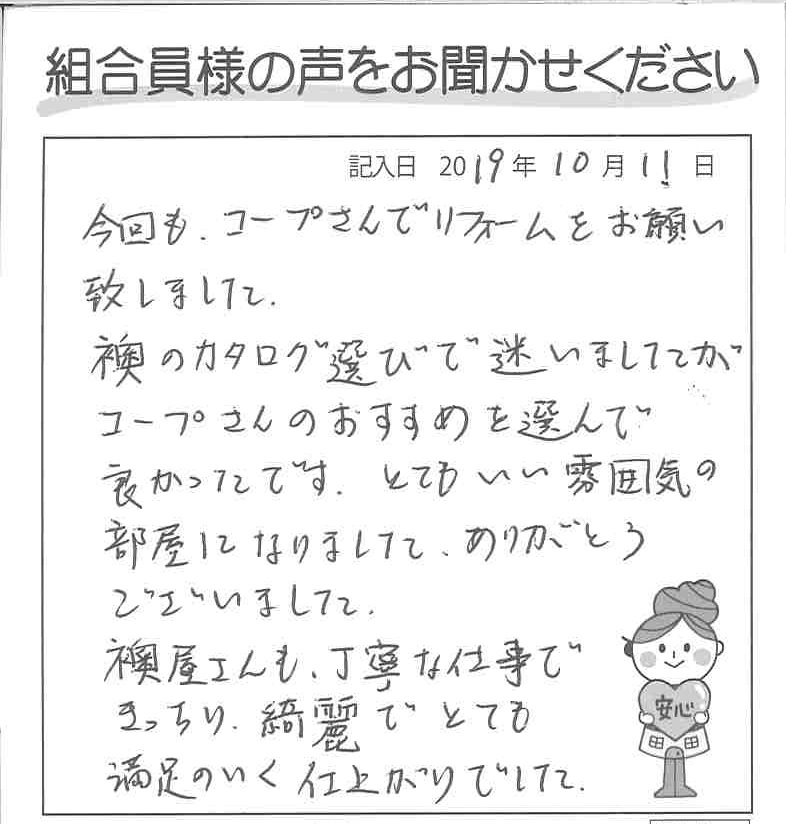 組合員様の声をお聞かせください
記入日 2019年 10月 11日
今回も、コープさんでリフォームをお願い
致しました。
襖のカタログ選びで迷いましたが
コープさんのおすすめを選んで
良かったです。とてもいい雰囲気の
部屋になりました、ありがとう
ございいました。
襖屋さんも、丁寧な仕事で
きっちり、綺麗でとても
満足のいく仕上がりでした。
安心